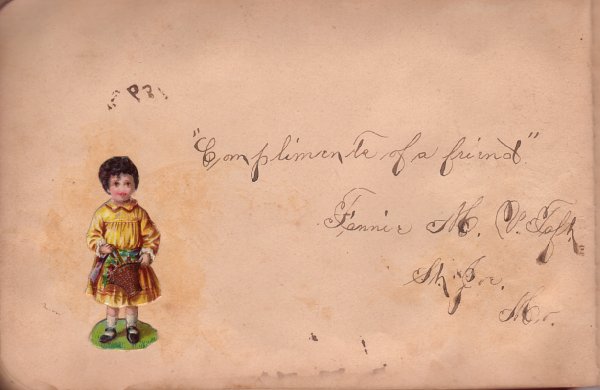 "Compliments of a friend."
Fannie M. V. Taft
St. Joe.
Mo.